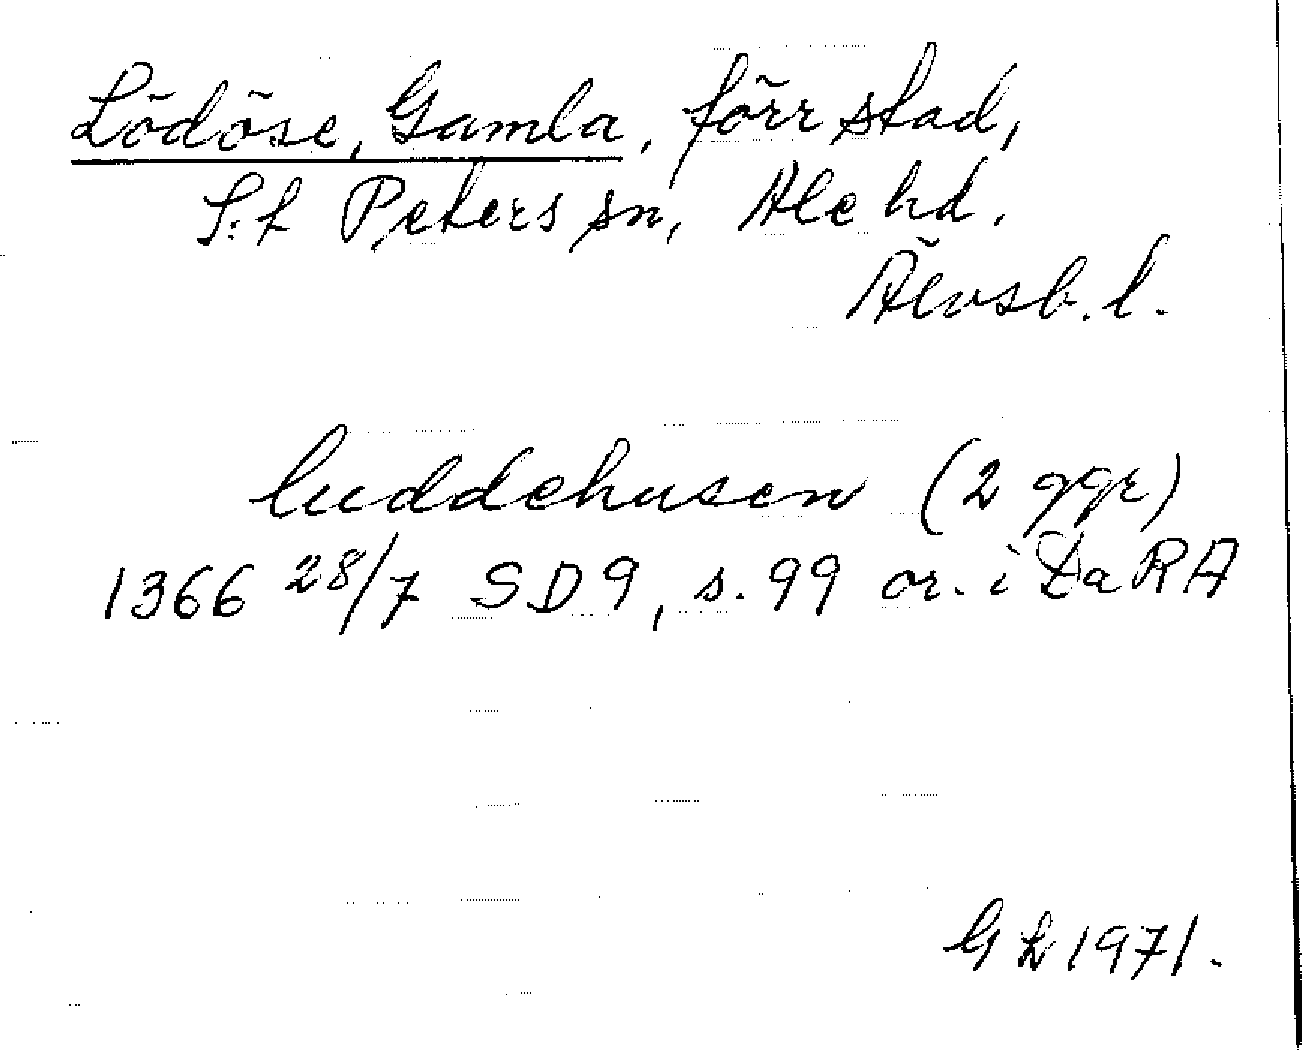 Lödöse, Gamla, förr stad,
S:t Peters sn, Ale hd.
Älvsb. l.
luddehusen (2 ggr)
1366 28/7 SD 9, s. 99 or. i Da RA
1971.